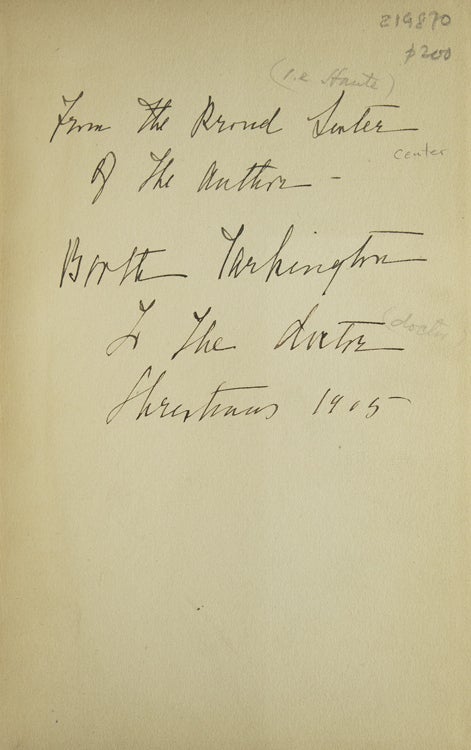 219870
$200
(i.e Haute)
From The Proud Sister
center
Of The Author -
Booth Tarkington
To The doctor
(doctor)
Christmas 1905